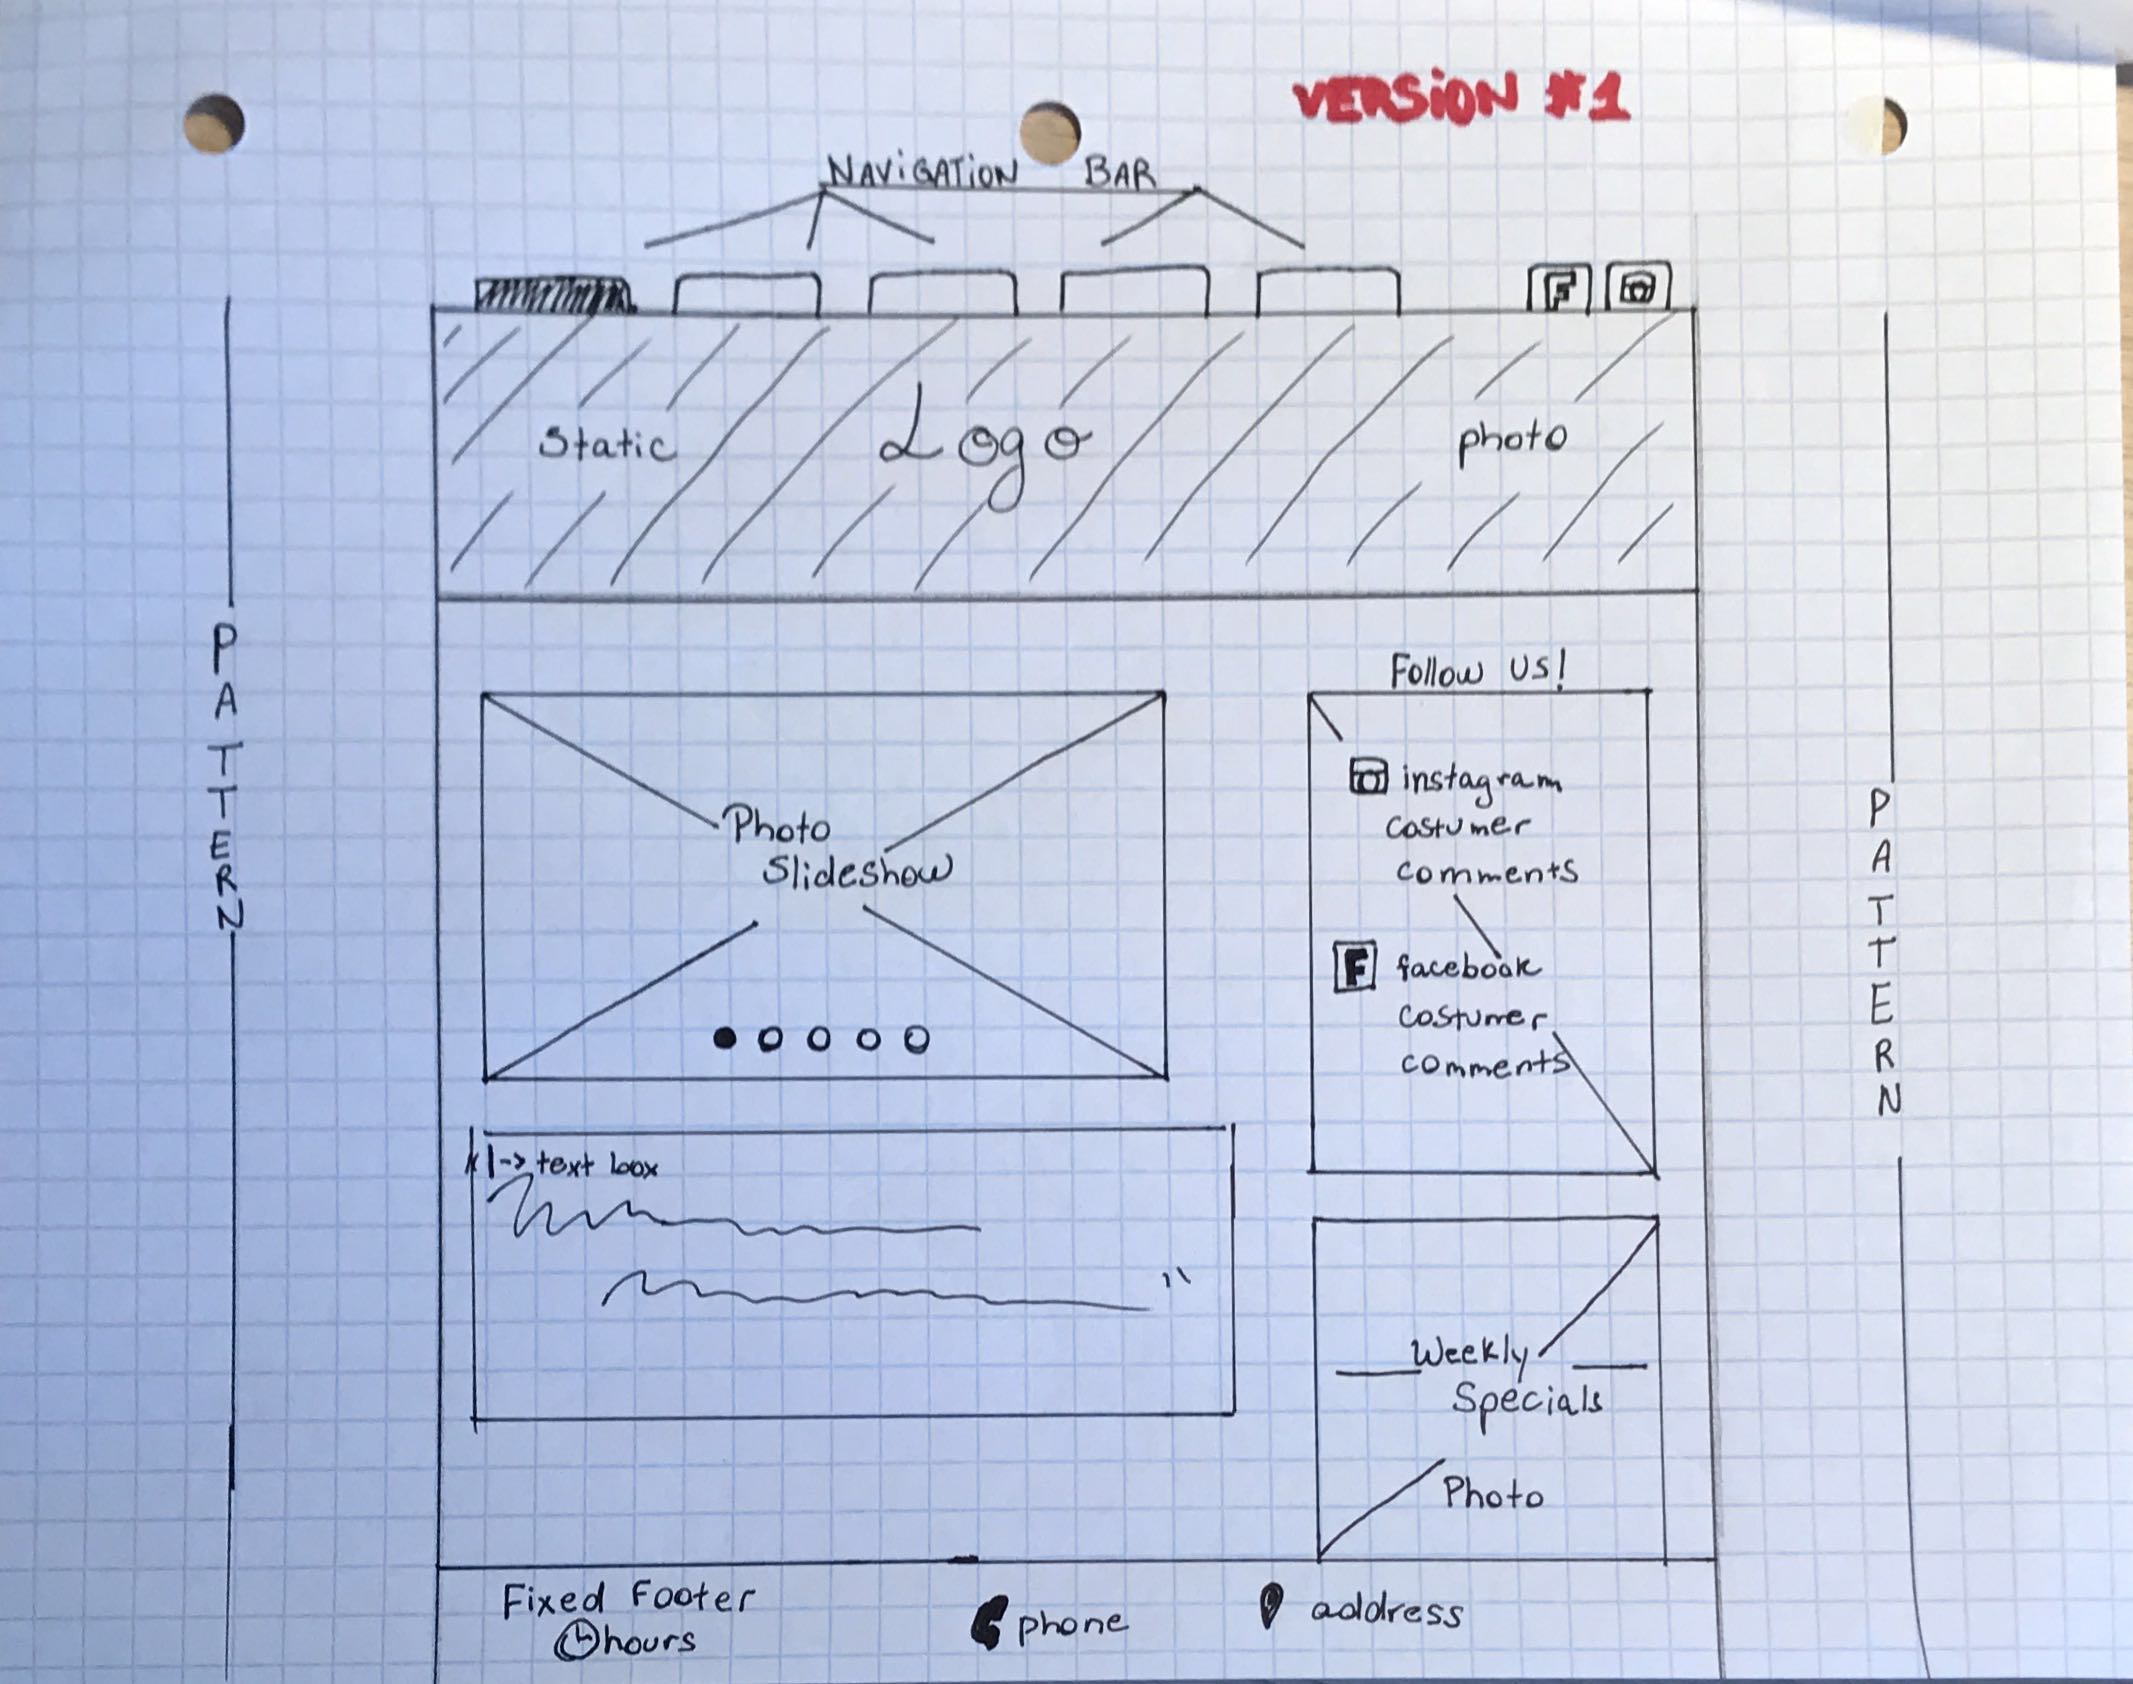 VERSION #1
NAVIGATION BAR
F
Static Logo photo
PATTERN
Follow US!
Photo
Slideshow
instagram
costumer
comments
F facebook
costumer
comments
PATTERN
text box
Weekly
Specials
Photo
Fixed Footer
hours
phone
address